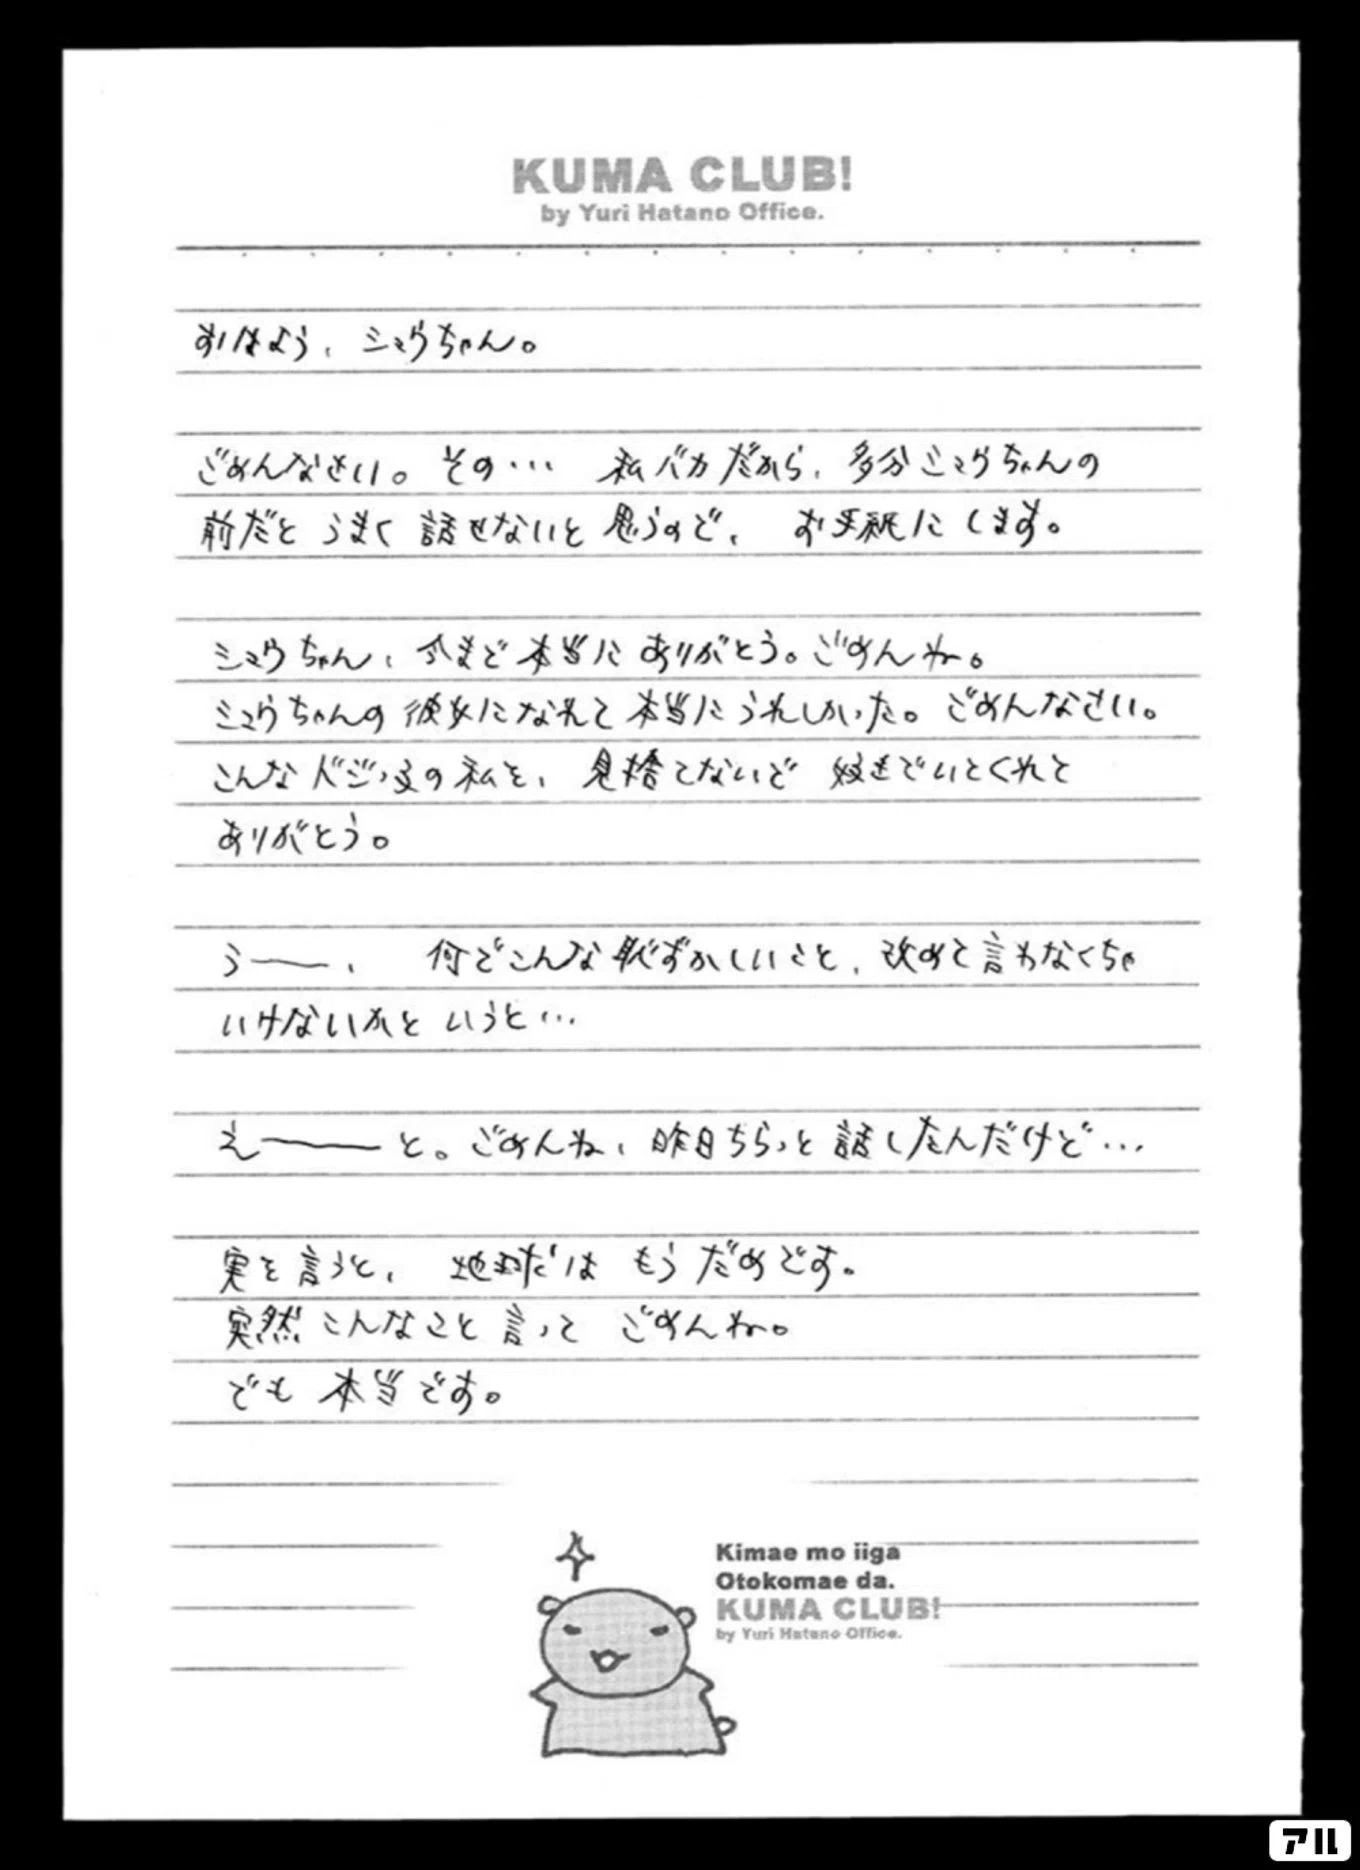 KUMA CLUB!
by Yuri Hatano Office.
おはよう、シュウちゃん。
ごめんなさい。その… 私バカだから、多分シュウちゃんの
前だと うまく 話せないと 思うので、 お手紙に します。
シュウちゃん、今まで 本当に ありがとう。ごめんね。
シュウちゃんの 彼女になれて 本当にうれしかった。ごめんなさい。
こんな ドジッ子の 私を、 見捨てないで 好きでいてくれて
ありがとう。
う――、 何でこんな 恥ずかしいこと、改めて 言わなくちゃ
いけないかと いうと…
え―――と。ごめんね、昨日ちらっと 話したんだけど…
実を 言うと、 地球は もう だめです。
突然 こんなこと 言って ごめんね。
でも 本当です。
Kimae mo iiga
Otokomae da.
KUMA CLUB!
by Yuri Hatano Office.
アル